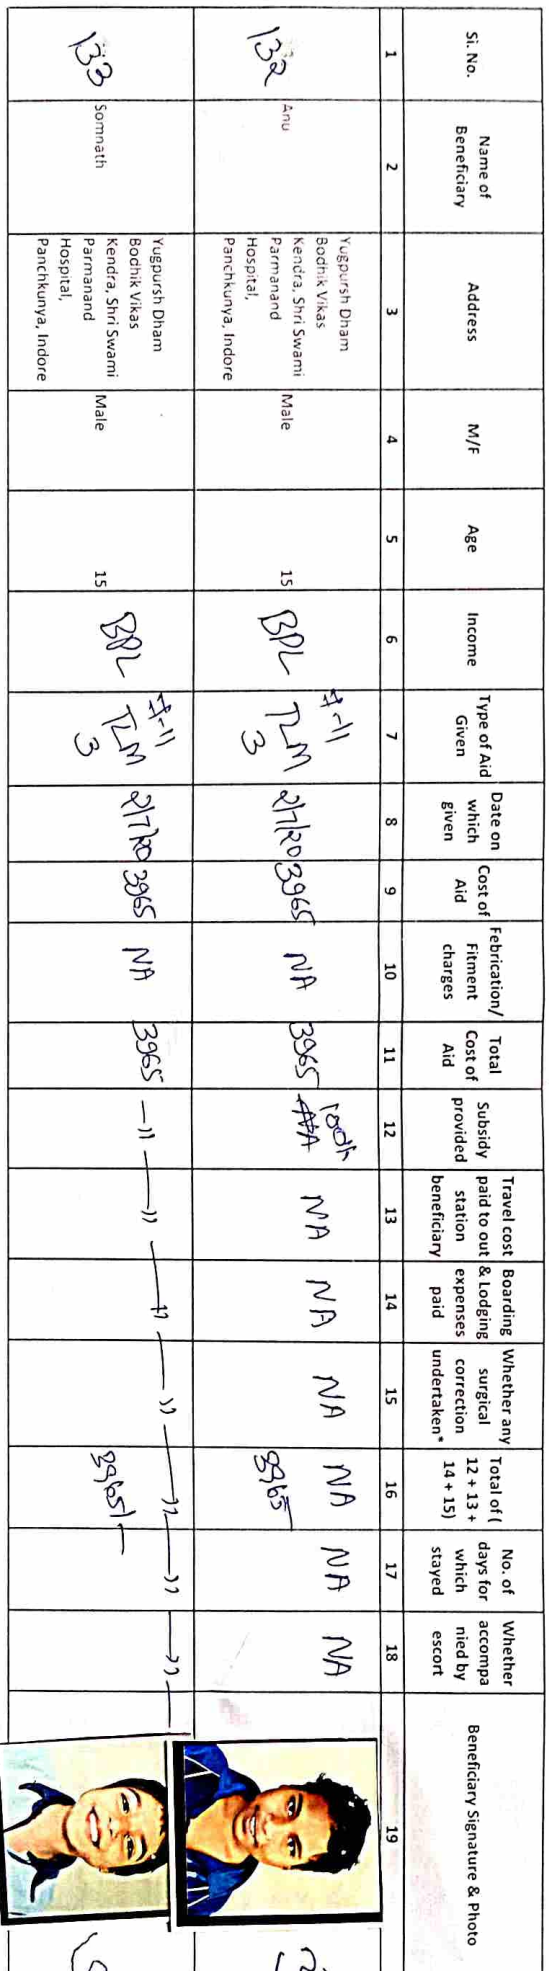 Si. No.
Name of
Beneficiary
Address
M/F
Age
Income
Type of Aid
Given
Date on
which
given
Cost of
Aid
Febrication/
Fitment
charges
Total
Cost of
Aid
Subsidy
provided
Travel cost
paid to out
station
beneficiary
Boarding
& Lodging
expenses
paid
Whether any
surgical
correction
undertaken*
Total of (
12 + 13 +
14 + 15)
No. of
days for
which
stayed
Whether
accompa
nied by
escort
Beneficiary Signature & Photo
1
2
3
4
5
6
7
8
9
10
11
12
13
14
15
16
17
18
19
132
Anu
Yugpursh Dham
Bodhik Vikas
Kendra, Shri Swami
Parmanand
Hospital,
Panchkunya, Indore
Male
15
BPL
TLM
3
2/7/20
3965
NA
3965
NA
NA
NA
NA
NA
3965
NA
NA
133
Somnath
Yugpursh Dham
Bodhik Vikas
Kendra, Shri Swami
Parmanand
Hospital,
Panchkunya, Indore
Male
15
BPL
TLM
3
2/7/20
3965
NA
3965
—〃—〃—〃—〃—〃—〃—〃—
3965/-